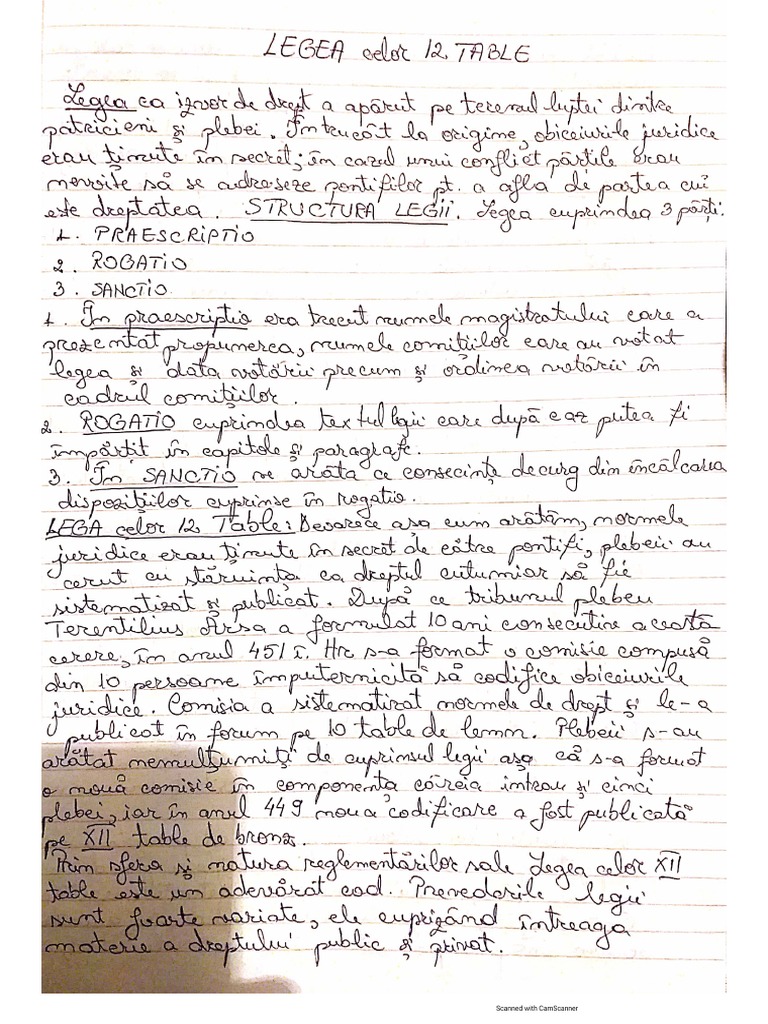 LEGEA celor 12 TABLE
Legea ca izvor de drept a apărut pe terenul luptei dintre
patricieni și plebei. Întrucât la origine, obiceiurile juridice
erau ținute în secret; în cazul unui conflict părțile erau
nevoite să se adreseze pontifilor pt. a afla de partea cui
este dreptatea. STRUCTURA LEGII. Legea cuprindea 3 părți:
1. PRAESCRIPTIO
2. ROGATIO
3. SANCTIO
1. În praescriptio era trecut numele magistratului care a
prezentat propunerea, numele comițiilor care au votat
legea și data votării precum și ordinea votării în
cadrul comițiilor.
2. ROGATIO cuprindea textul legii care după caz putea fi
împărțit în capitole și paragrafe.
3. În SANCTIO se arăta ce consecințe decurg din încălcarea
dispozițiilor cuprinse în rogatio.
LEGA celor 12 Table: Deoarece așa cum arătăm, normele
juridice erau ținute în secret de către pontifi, plebeii au
cerut cu stăruința ca dreptul cutumiar să fie
sistematizat și publicat. După ce tribunul plebeu
Terentilius Arsa a formulat 10 ani consecutivi această
cerere, în anul 451 î. Hr s-a format o comisie compusă
din 10 persoane împuternicită să codifice obiceiurile
juridice. Comisia a sistematizat normele de drept și le-a
publicat în forum pe 10 table de lemn. Plebeii s-au
arătat nemulțumiți de cuprinsul legii așa că s-a format
o nouă comisie în componența căreia intrau și cinci
plebei, iar în anul 449 noua codificare a fost publicată
pe XII table de bronz.
Prin sfera și natura reglementărilor sale Legea celor XII
table este un adevărat cod. Prevederile legii
sunt foarte variate, ele cuprizând întreaga
materie a dreptului public și privat.
Scanned with CamScanner